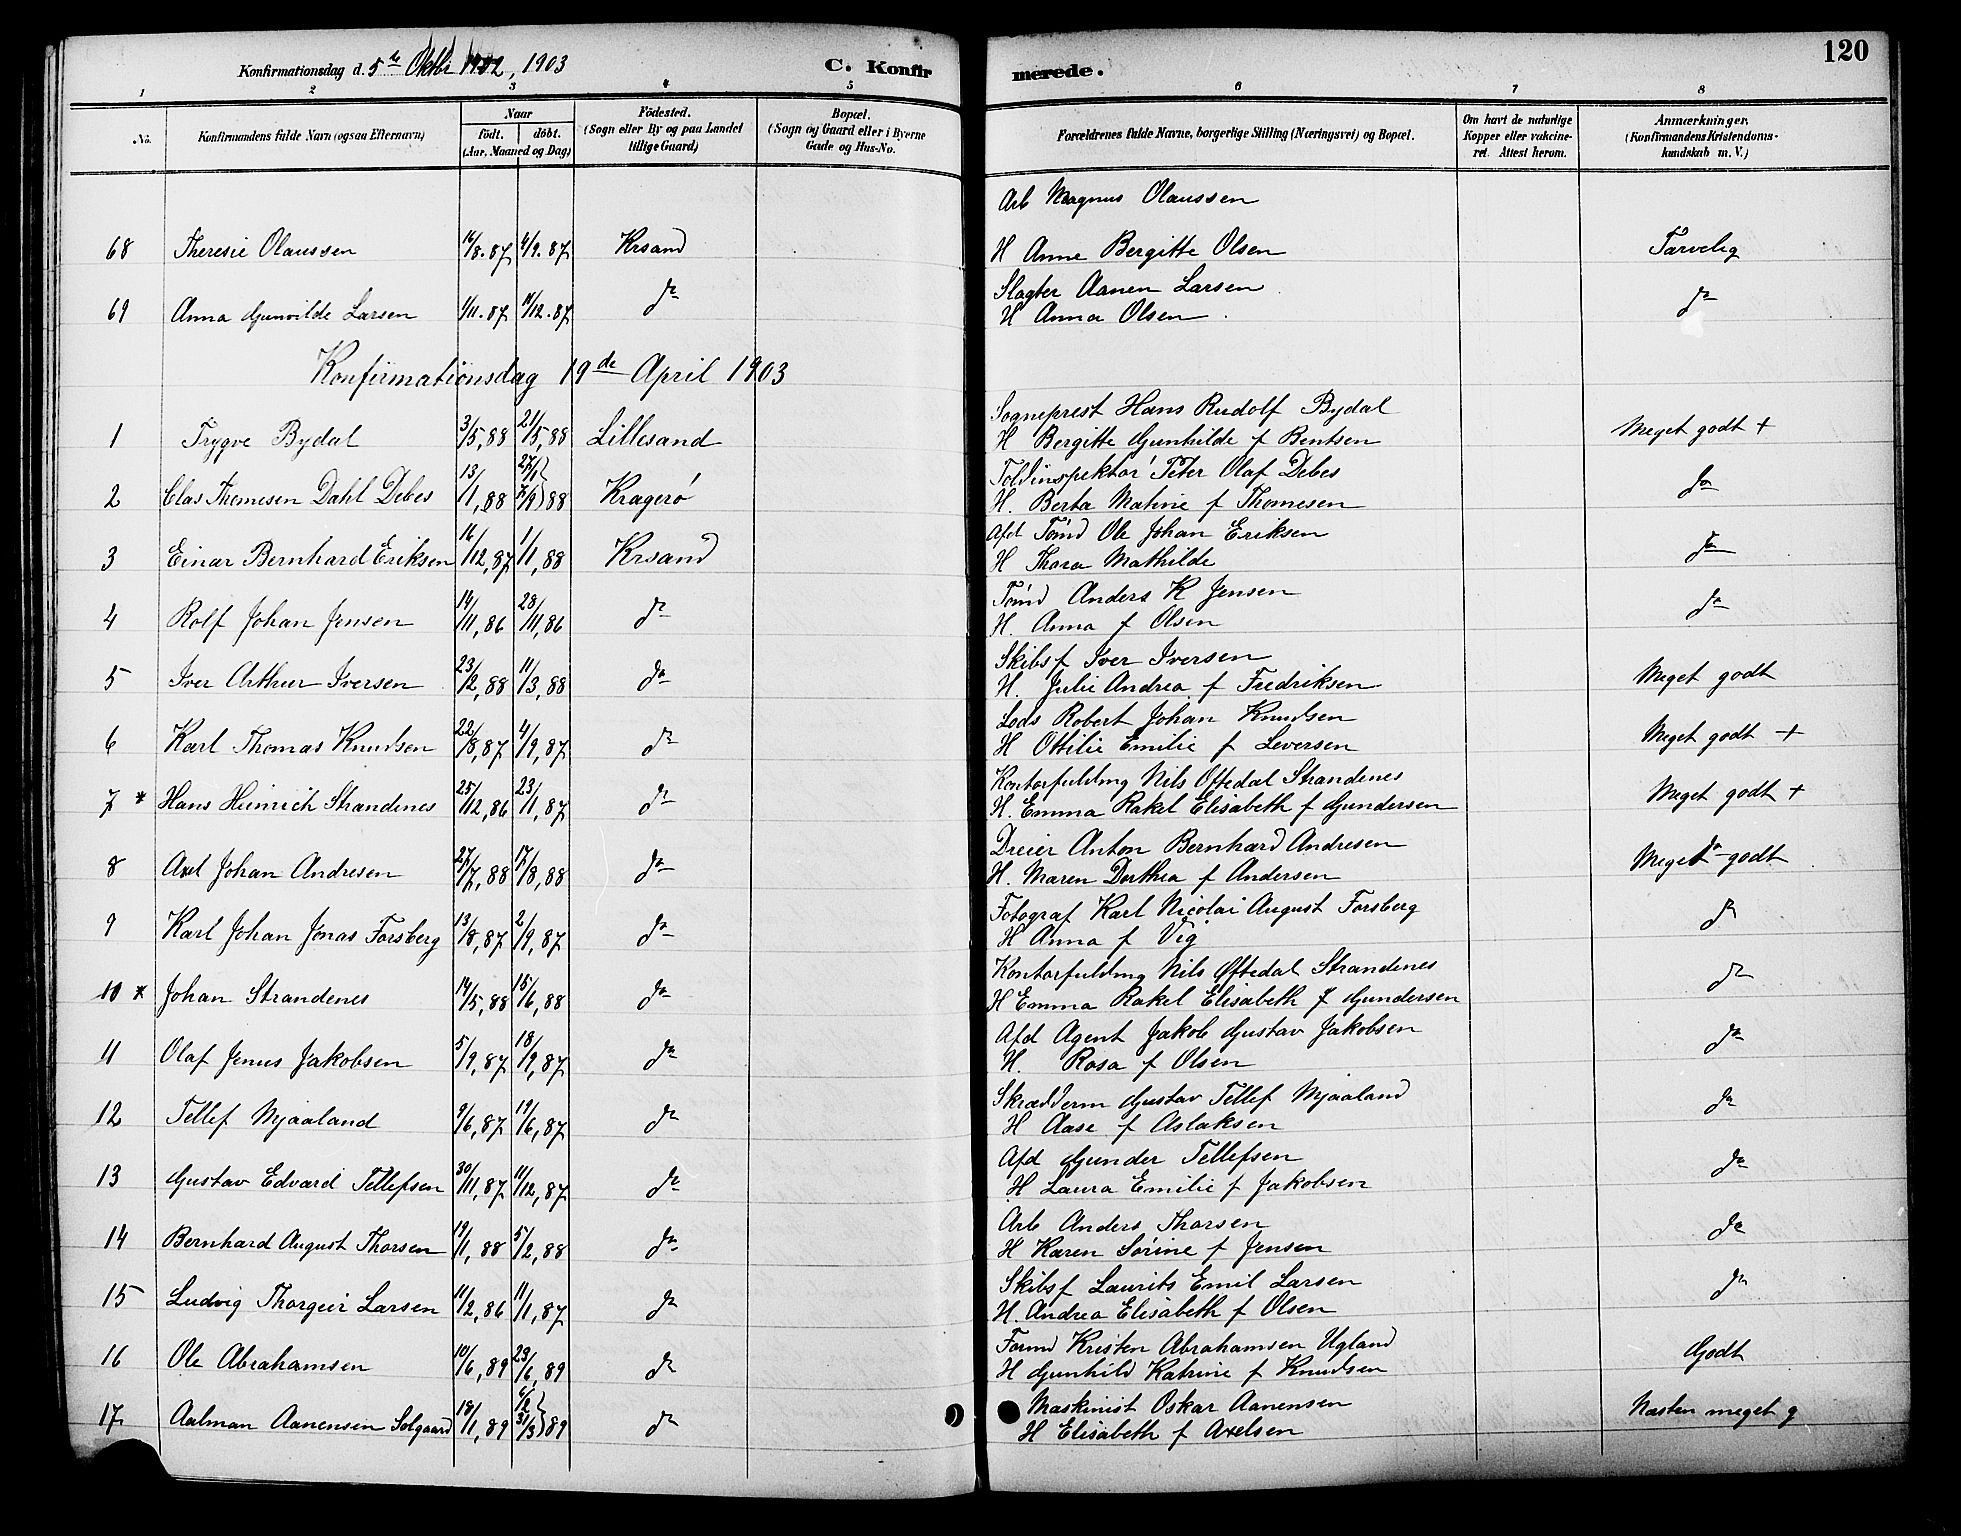 Konfirmationsdag d. 5te Oktbr 1902, 1903
C. Konfirmerede.
120
1 2 3 4 5 6 7 8
No.
Konfirmandens fulde Navn (ogsaa Efternavn)
Naar
födt. döbt.
(Aar, Maaned og Dag)
Födested.
(Sogn eller By og paa Landet
tillige Gaard)
Bopæl.
(Sogn og Gaard eller i Byerne
Gade og Hus-No.
Forældrenes fulde Navne, borgerlige Stilling (Næringsvei) og Bopæl.
Om havt de naturlige
Kopper eller vakcine-
ret. Attest herom.
Anmærkninger.
(Konfirmandens Kristendoms-
kundskab m. V.)
Arb Magnus Olaussen
68 Theresie Olaussen 16/8.87 4/9.87 Krsand H Anne Bergitte Olsen Tarvelig
Slagter Aanen Larsen
69 Anna Gunvilde Larsen 1/11.87 11/12.87 do H Anna Olsen do
Konfirmationsdag 19de April 1903
Sogneprest Hans Rudolf Bydal
1 Trygve Bydal 3/5,88 21/5,88 Lillesand H Bergitte Gunhilde f Bentsen Meget godt +
Toldinspektør Peter Olaf Debes
2 Clas Thomesen Dahl Debes 13/1,88 27/1 7/9 88 Kragerø H. Berta Matine f Thomesen do
Afd Tømd Ole Johan Eriksen
3 Einar Bernhard Eriksen 16/12,87 1/1,88 Krsand H Thora Mathilde do
Tømd Anders K Jensen
4 Rolf Johan Jensen 14/11,86 28/11,86 do H. Anna f Olsen do
Skibsf Iver Iversen
5 Iver Arthur Iversen 23/2,88 11/3,88 do H. Julie Andrea f Fredriksen Meget godt
Lods Robert Johan Knudsen
6 Karl Thomas Knudsen 22/8,87 4/9,87 do H Ottilie Emilie f Leversen Meget godt +
Kontorfuldmg Nils Oftedal Strandenes
7 * Hans Heinrich Strandenes 25/12,86 23/1,87 do H. Emma Rakel Elisabeth f Gundersen Meget godt +
Dreier Anton Bernhard Andresen
8 Axel Johan Andresen 27/7,88 17/8,88 do H. Maren Dorthea f Andersen Meget godt
Fotograf Karl Nicolai August Forsberg
9 Karl Johan Jonas Forsberg 13/8,87 2/9,87 do H Anna f Vig do
Kontorfuldmg Nils Oftedal Strandenes
10 * Johan Strandenes 14/5,88 15/6,88 do H Emma Rakel Elisabeth f Gundersen do
Afd Agent Jakob Gustav Jakobsen
11 Olaf Jenus Jakobsen 5/9,87 18/9,87 do H. Rosa f Olsen do
Skrædderm Gustav Tellef Mjaaland
12 Tellef Mjaaland 9/6,87 19/6,87 do H Aase f Aslaksen do
Afd Gunder Tellefsen
13 Gustav Edvard Tellefsen 30/11,87 11/12,87 do H Laura Emilie f Jakobsen do
Arb Anders Thorsen
14 Bernhard August Thorsen 19/1,88 5/2,88 do H Karen Sørine f Jensen do
Skibsf Laurits Emil Larsen
15 Ludvig Thorgeir Larsen 11/2,86 11/1,87 do H. Andrea Elisabeth f Olsen do
Formd Kristen Abrahamsen Ugland
16 Ole Abrahamsen 10/6,89 23/6,89 do H Gunhild Katrine f Knudsen Godt
Maskinist Oskar Aanensen
17 Aalman Aanensen Solgaard 18/1,89 6/2 31/3 89 do H Elisabeth f Axelsen Næsten meget g